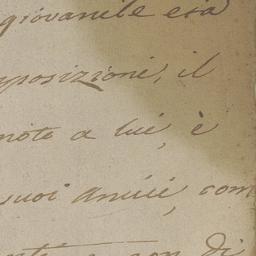 giovanile età
mposizioni, il
note a lui, è
suoi amici, com